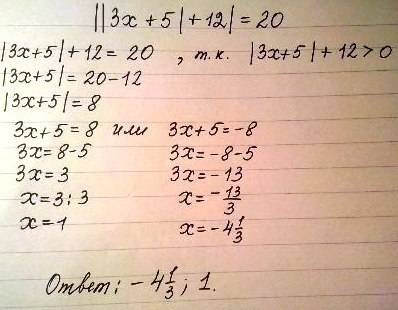 ||3x+5|+12|=20
|3x+5|+12=20, т.к. |3x+5|+12>0
|3x+5|=20-12
|3x+5|=8
3x+5=8 или 3x+5=-8
3x=8-5 3x=-8-5
3x=3 3x=-13
x=3:3 x=-13/3
x=1 x=-4 1/3
Ответ: -4 1/3; 1.